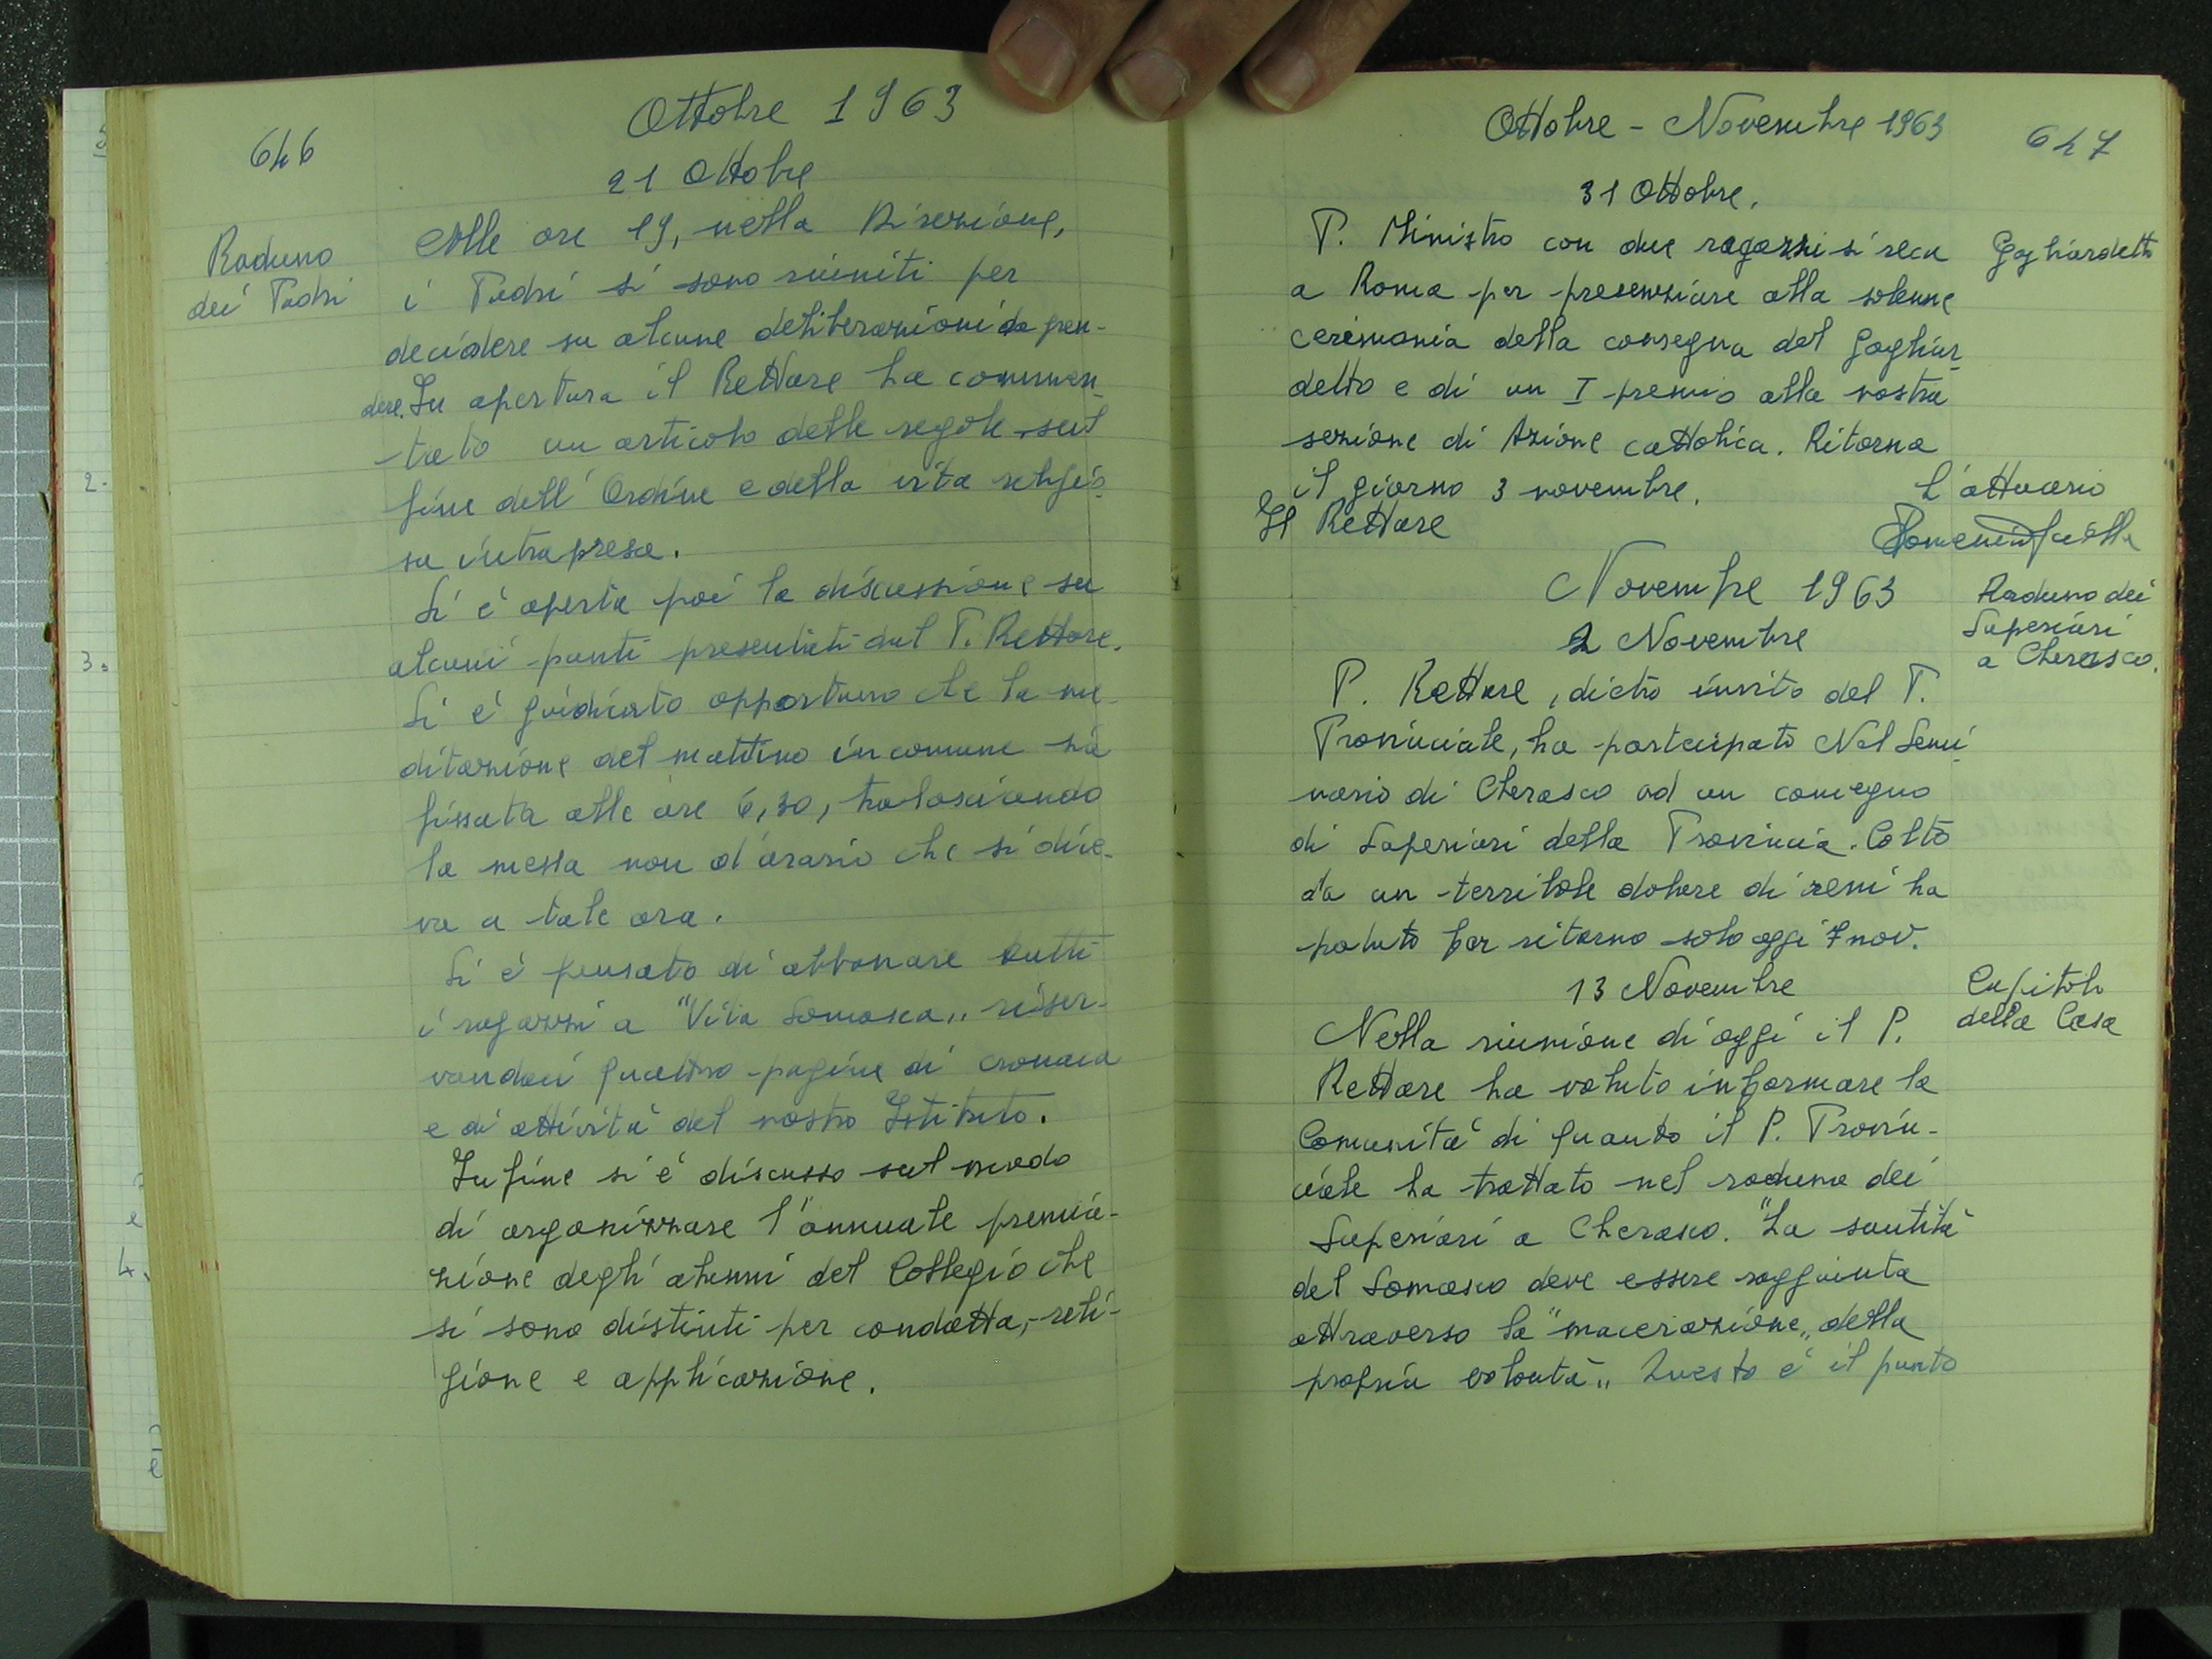 646
Ottobre 1963
21 Ottobre
Raduno
dei Padri
Alle ore 19, nella Direzione,
i Padri si sono riuniti per
decidere su alcune deliberazioni da pren-
dere. In apertura il Rettore ha commen-
tato un articolo delle regole sul
fine dell'Ordine e della vita religio-
sa intrapresa.
Si è aperta poi la discussione su
alcuni punti presentati dal P. Rettore.
Si è guidicato opportuno che la me-
ditazione del mattino in comune sia
fissata alle ore 6,30, tralasciando
la messa non d'orario che si dice-
va a tale ora.
Si è pensato di abbonare tutti
i ragazzi a "Vita Somasca" riser-
vandoci quattro pagine di cronaca
e di attività del nostro Istituto.
Infine si è discusso sul modo
di organizzare l'annuale premia-
zione degli alunni del Collegio che
si sono distinti per condotta, reli-
gione e applicazione.
Ottobre - Novembre 1963
647
31 Ottobre.
P. Ministro con due ragazzi si reca
Gagliardetto
a Roma per presenziare alla solenne
cerimonia della consegna del Gagliar-
detto e di un I premio alla nostra
sezione di Azione cattolica. Ritorna
il giorno 3 novembre.
L'attuario
Il Rettore
Novembre 1963
2 Novembre
Raduno dei
Superiori
a Cherasco.
P. Rettore, dietro invito del P.
Provinciale, ha partecipato Nel Semi-
nario di Cherasco ad un convegno
di Superiori della Provincia. Colto
da un terribile dolore di reni ha
potuto far ritorno solo oggi 7 nov.
13 Novembre
Capitolo
della Casa
Nella riunione di oggi il P.
Rettore ha voluto informare la
Comunità di quanto il P. Provin-
ciale ha trattato nel raduno dei
Superiori a Cherasco. "La santità
del Somasco deve essere raggiunta
attraverso la "macerazione" della
propria volontà" Questo è il punto